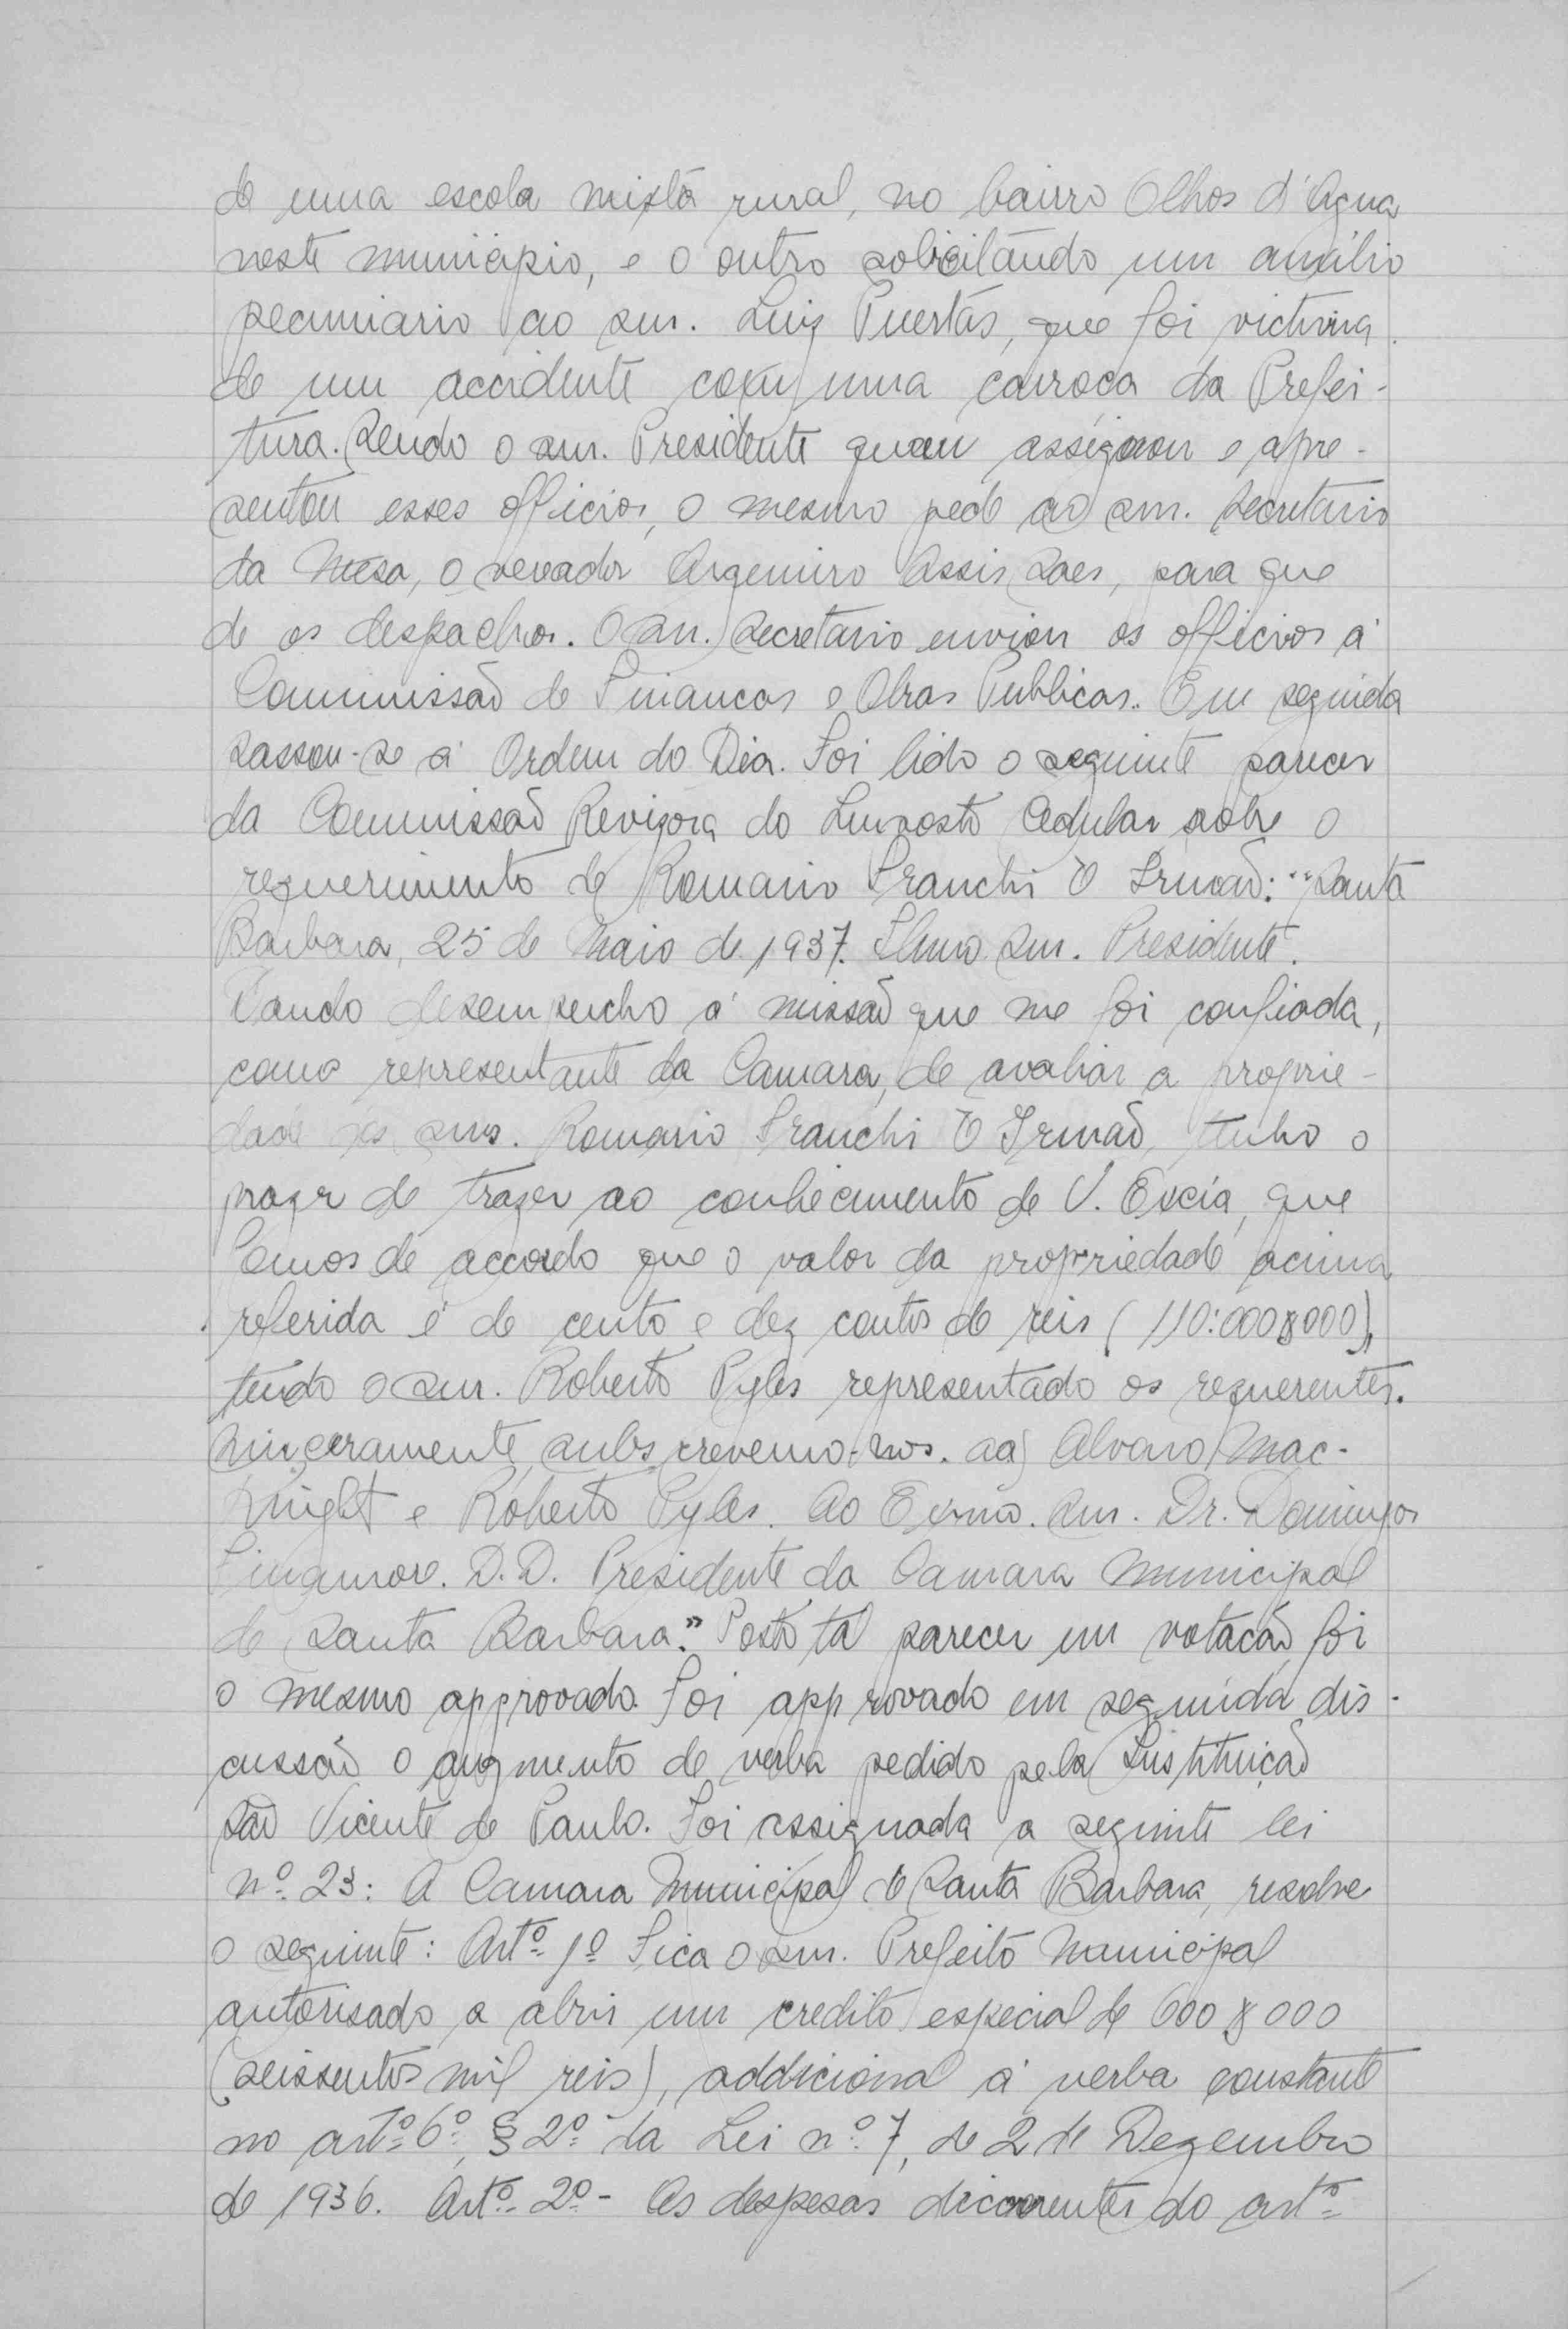 de uma escola mixta rural, no bairro Olhos d'Agua
neste municipio, e o outro solicitando um auxilio
pecuniario ao snr. Luiz Puertas, que foi victima
de um accidente com uma carroça da Prefei-
tura. Sendo o snr. Presidente quem assignou e apre-
sentou esses officios, o mesmo pede ao snr. Secretario
da Mesa, o vereador Argemiro Assis Saes, para que
de os despachos. O snr. Secretario enviou os officios á
Commissão de Finanças e Obras Publicas. Em seguida
passou-se á Ordem do Dia. Foi lido o seguinte parecer
da Commissão Revisora do Imposto Cedular sobre o
requerimento de Romario Franchi & Irmão: "Santa
Barbara, 25 de Maio de 1937. Illmo. Snr. Presidente.
Dando desempenho á missão que me foi confiada,
como representante da Camara, de avaliar a proprie-
dade dos snrs. Romario Franchi & Irmão, tenho o
prazer de trazer ao conhecimento de V. Excia, que
somos de accordo que o valor da propriedade acima
referida é de cento e dez contos de reis (110:000$000),
tendo o snr. Roberto Pyles representado os requerentes.
Sinceramente, subscrevemo-nos. aa) Alvaro Mac-
Knight e Roberto Pyles. Ao Exmo. Snr. Dr. Domingos
Finamore. D.D. Presidente da Camara Municipal
de Santa Barbara." Posto tal parecer em votação, foi
o mesmo approvado. Foi approvado em segunda dis-
cussão o augmento de verba pedido pela Instituição
São Vicente de Paulo. Foi assignada a seguinte lei
nº 23: A Camara Municipal de Santa Barbara, resolve
o seguinte: Artº 1º Fica o snr. Prefeito Municipal
autorisado a abrir um credito especial de 600$000
(seissentos mil reis), addicional á verba constante
no artº 6º, § 2º da Lei nº 7, de 2 de Dezembro
de 1936. Artº 2º - As despesas decorrentes do artº